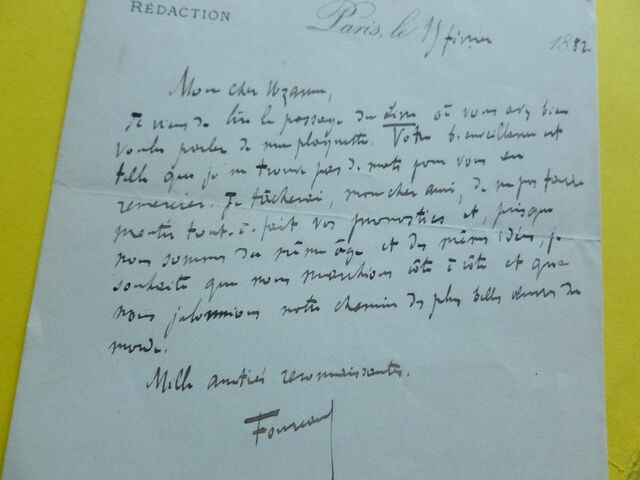 RÉDACTION
Paris, le 15 février 1882.
Mon cher Uzanne,
Je viens de lire le passage du livre où vous avez bien
voulu parler de ma plaquette. Votre bienveillance est
telle que je ne trouve pas de mots pour vous en
remercier. Je tâcherai, mon cher ami, de ne pas faire
mentir tout-à-fait vos pronostics et, puisque
nous sommes du même âge et des mêmes idées, je
souhaite que nous marchions côte à côte et que
nous jalonnions notre chemin des plus belles œuvres du
monde.
Mille amitiés reconnaissantes.
Fourcaud